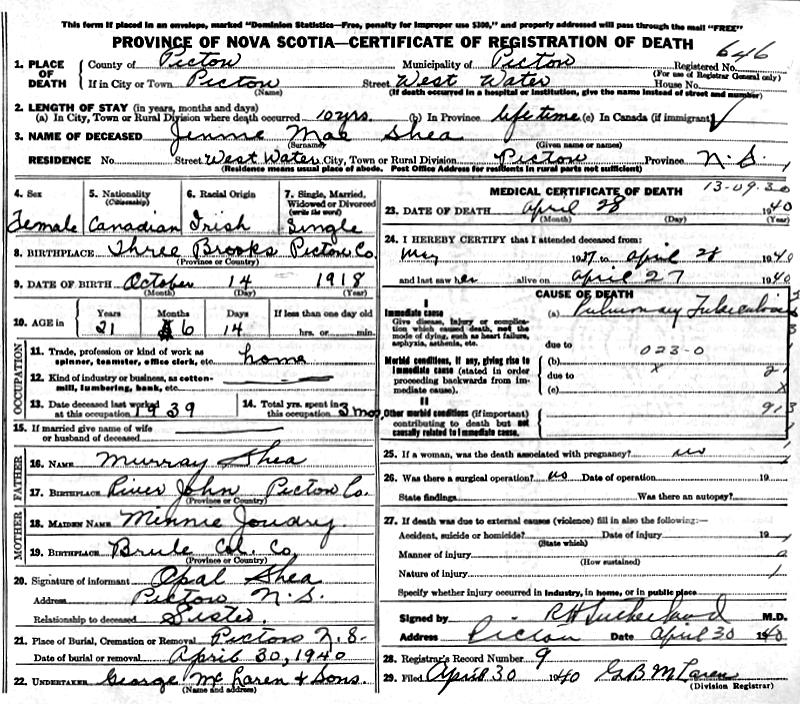 This form if placed in an envelope, marked "Dominion Statistics—Free, penalty for improper use $300," and properly addressed will pass through the mail "FREE"
PROVINCE OF NOVA SCOTIA—CERTIFICATE OF REGISTRATION OF DEATH
646
1. PLACE OF DEATH
County of Pictou Municipality of Pictou Registered No.
(For use of Registrar General only)
If in City or Town Pictou Street West Water House No.
(Name) (If death occurred in a hospital or institution, give the name instead of street and number)
2. LENGTH OF STAY (in years, months and days)
(a) In City, Town or Rural Division where death occurred 10 yrs. (b) In Province life time (c) In Canada (if immigrant) ✓
3. NAME OF DECEASED Jennie Mae Shea
(Surname) (Given name or names)
RESIDENCE No. Street West Water City, Town or Rural Division Pictou Province N.S.
(Residence means usual place of abode. Post Office Address for residents in rural parts not sufficient)
4. Sex
Female
5. Nationality (Citizenship)
Canadian
6. Racial Origin
Irish
7. Single, Married, Widowed or Divorced (write the word)
Single
8. BIRTHPLACE Three Brooks Pictou Co.
(Province or Country)
9. DATE OF BIRTH October 14 1918
(Month) (Day) (Year)
10. AGE in
Years Months Days If less than one day old
21 6 14 hrs. or min.
OCCUPATION
11. Trade, profession or kind of work as spinner, teamster, office clerk, etc. home
12. Kind of industry or business, as cotton-mill, lumbering, bank, etc.
13. Date deceased last worked at this occupation 1939
14. Total yrs. spent in this occupation 3 mos
15. If married give name of wife or husband of deceased
FATHER
16. NAME Murray Shea
17. BIRTHPLACE River John Pictou Co.
(Province or Country)
MOTHER
18. MAIDEN NAME Minnie Joudry.
19. BIRTHPLACE Brule Col. Co.
(Province or Country)
20. Signature of informant Opal Shea
Address Pictou N.S.
Relationship to deceased Sister
21. Place of Burial, Cremation or Removal Pictou N.S.
Date of burial or removal April 30, 1940
22. UNDERTAKER George McLaren & Sons.
(Name and address)
MEDICAL CERTIFICATE OF DEATH 13-09.30
23. DATE OF DEATH April 28 1940
(Month) (Day) (Year)
24. I HEREBY CERTIFY that I attended deceased from:
May 1937 to April 28 1940
and last saw her alive on April 27 1940
CAUSE OF DEATH
I
Immediate cause
Give disease, injury or complication which caused death, not the mode of dying, such as heart failure, asphyxia, asthenia, etc.
(a) Pulmonary Tuberculosis
due to
Morbid conditions, if any, giving rise to immediate cause (stated in order proceeding backwards from immediate cause).
(b) 023-0
due to x 21
(c) x
II
Other morbid conditions (if important) contributing to death but not causally related to immediate cause.
913
25. If a woman, was the death associated with pregnancy? no
26. Was there a surgical operation? no Date of operation 19
State findings Was there an autopsy?
27. If death was due to external causes (violence) fill in also the following:—
Accident, suicide or homicide? Date of injury 19
(State which)
Manner of injury 0
(How sustained)
Nature of injury 1
Specify whether injury occurred in industry, in home, or in public place
Signed by R H Sutherland M.D.
Address Pictou Date April 30 1940
28. Registrar's Record Number 9
29. Filed April 30 1940 G B McLaren
(Division Registrar)